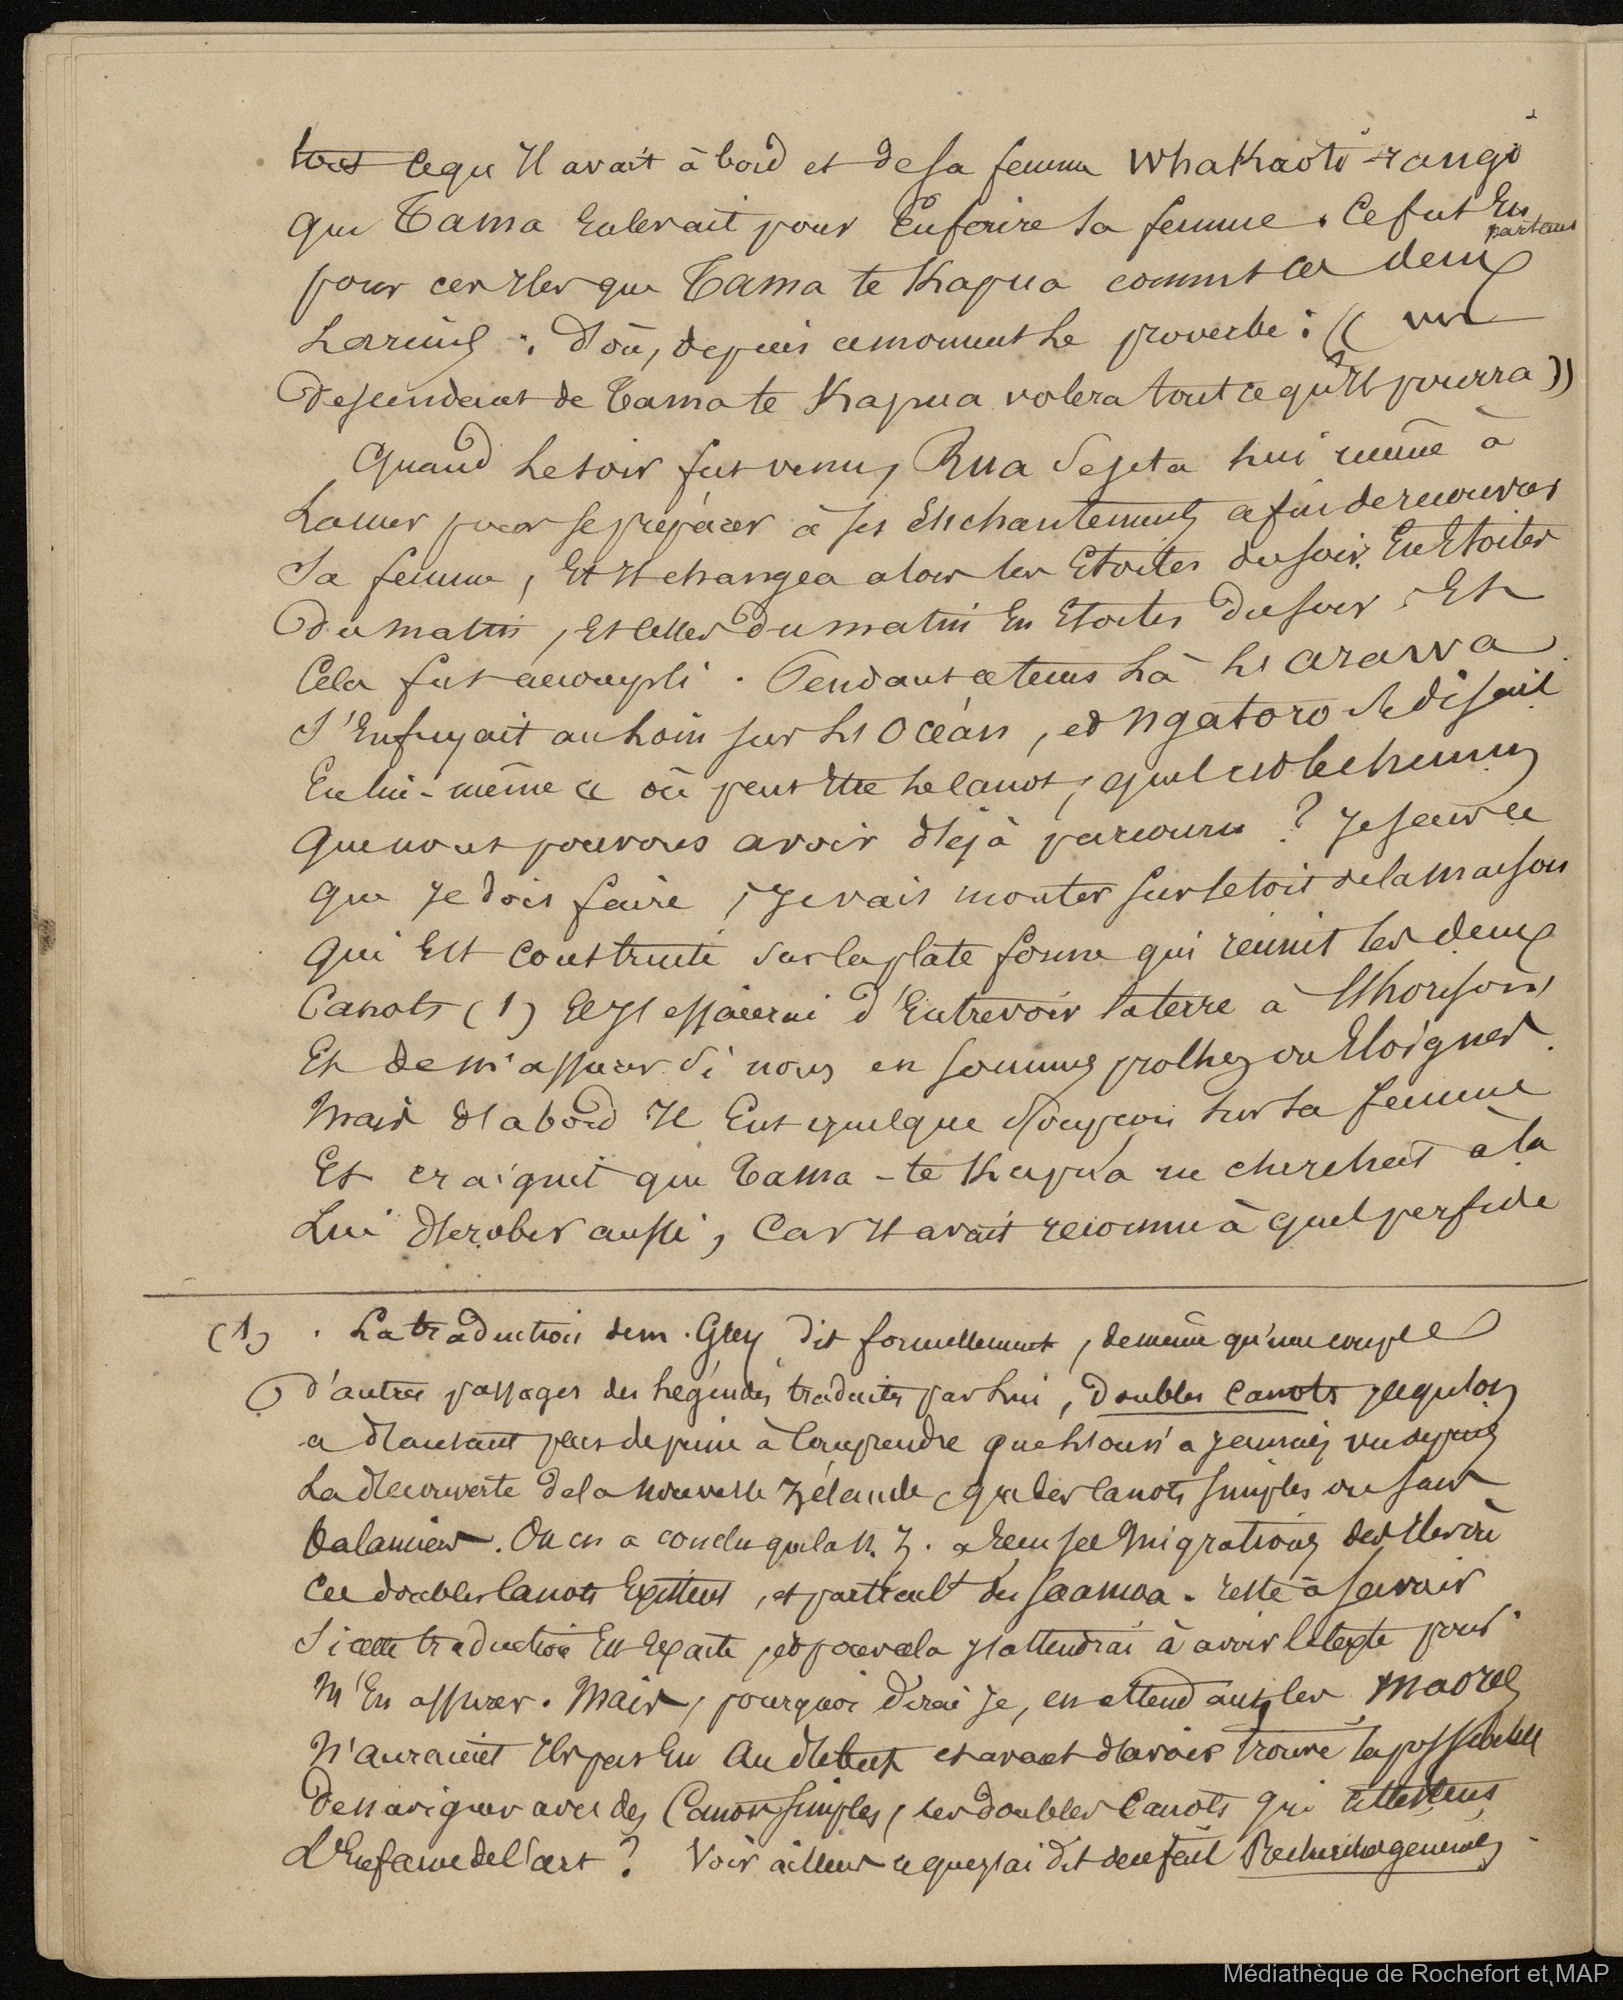 tout ce qu'il avait à bord et de sa femme Whakaoti-rangi
que Tama enlevait pour En faire sa femme. Ce fut En partant
pour ces iles que Tama te Kapua commit ces deux
Larcins ; d'où, depuis ce moment le proverbe : (( un
descendant de Tama te Kapua volera tout ce qu'il pourra ))
Quand le soir fut venu, Rua se jeta lui même à
La mer pour se préparer à ses Enchantements afin de recouvrer
Sa femme, Et il changea alors les Etoiles du soir En Etoiles
du matin, Et celles du matin En Etoiles du soir, Et
Cela fut accompli. Pendant ce tems Là l'arawa
S'Enfuyait au Loin sur l'Océan, et Ngatoro se disait
En lui-même où peut être le canot, quel est le chemin
que nous pouvons avoir déjà parcouru ? Je sais ce
que je dois faire, je vais monter sur le toit de la maison
qui Est construite sur la plate forme qui réunit les deux
Canots (1) Et j'essaierai d'Entrevoir la terre à l'horison,
Et de m'assurer si nous en sommes proches ou Eloignés.
Mais d'abord il Eut quelque soupçon sur sa femme
Et craignit que Tama-te Kapua ne cherchat à la
Lui dérober aussi, Car il avait reconnu à quel perfide
(1). La traduction de m. Grey dit formellement, de même qu'une couple
d'autres passages des Légendes traduites par lui, doubles canots, ce que l'on
a d'autant plus de peine à comprendre que l'on n'a jamais vu depuis
La découverte de la nouvelle Zélande, que des canots simples ou sans
balancier. On en a conclu que la N. Z. a reçu ses Emigrations des iles où
Ces doubles Canots Existent, et particult des Saamoa. reste à savoir
Si cette traduction Est Exacte, et pour cela j'attendrai à avoir le texte pour
m'En assurer. Mais, pourquoi dirai je, en attendant, les Maoris
N'auraient ils pas Eu Au début et avant d'avoir trouvé la possibilité
de naviguer avec des Canots simples, ces doubles Canots qui attestent
l'Enfance de l'art ? Voir ailleurs ce que j'ai dit de ce fait Recherches generales
Médiathèque de Rochefort et MAP